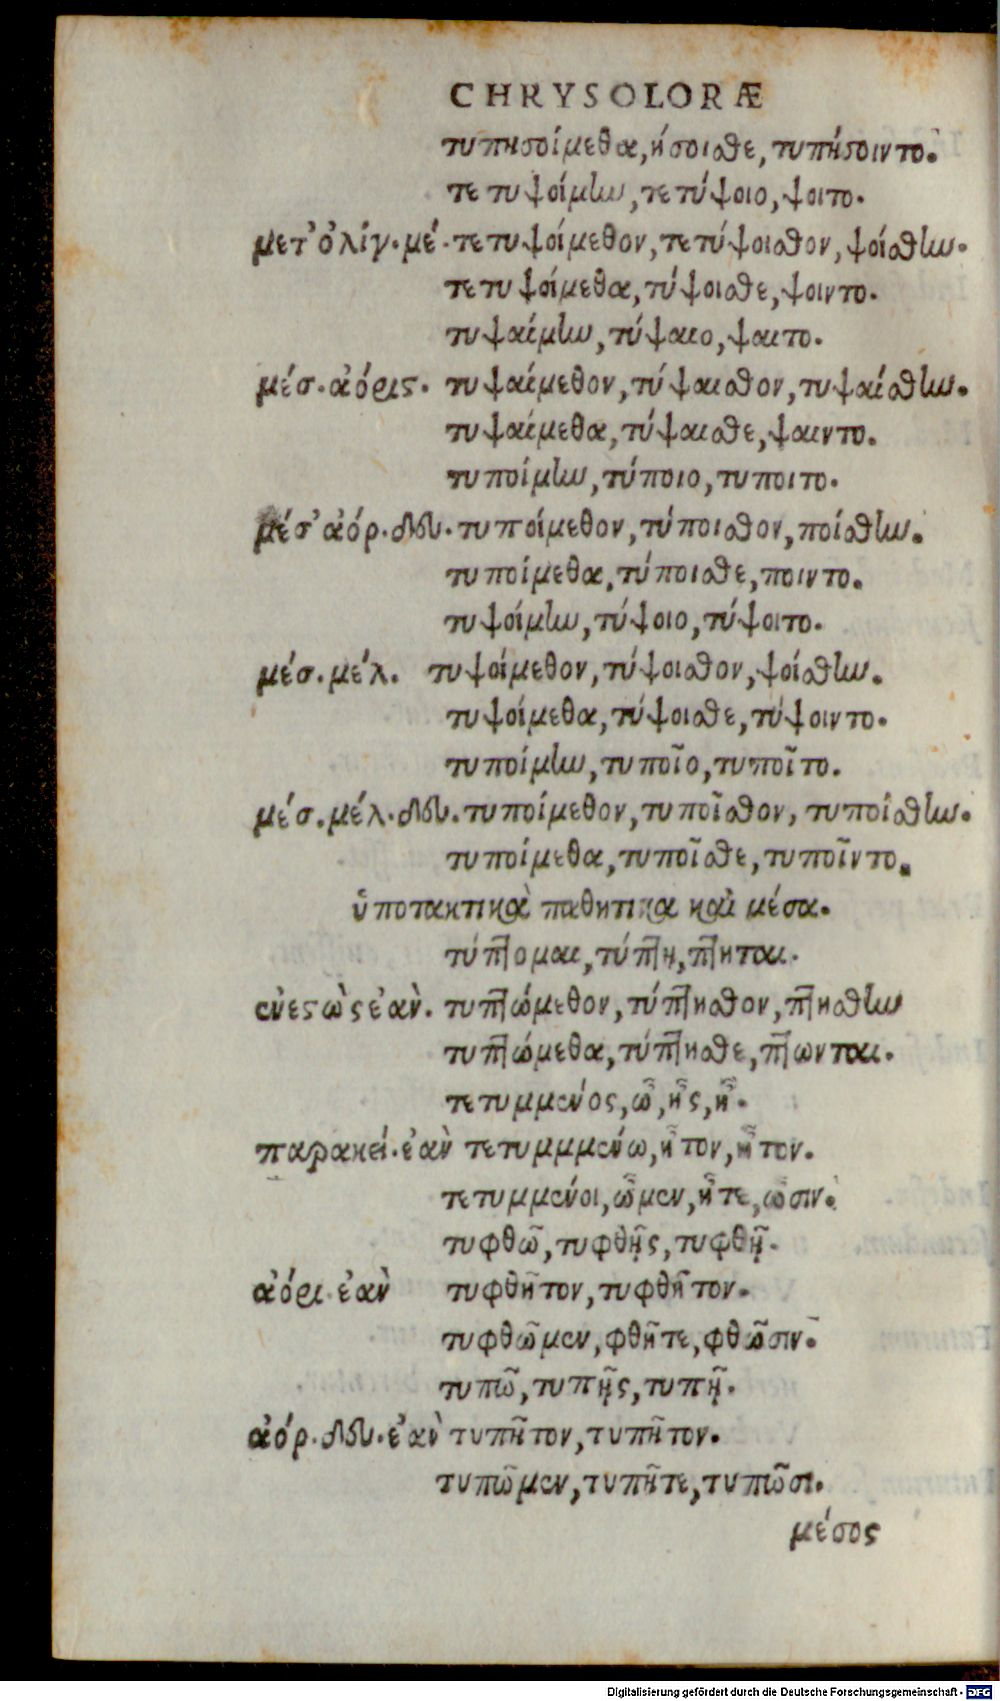 CHRYSOLORÆ
τυπησοίμεθα, ήσοισθε, τυπήσοιντο.
τετυψοίμην, τετύψοιο, ψοιτο.
μετ' ὀλίγ. μέ. τετυψοίμεθον, τετύψοισθον, ψοίσθην.
τετυψοίμεθα, τύψοισθε, ψοιντο.
τυψαίμην, τύψαιο, ψαιτο.
μέσ. ἀόρις. τυψαίμεθον, τύψαισθον, τυψαίσθην.
τυψαίμεθα, τύψαισθε, ψαιντο.
τυποίμην, τύποιο, τυποιτο.
μέσ' ἀόρ. δευ. τυποίμεθον, τύποισθον, ποίσθην.
τυποίμεθα, τύποισθε, ποιντο.
τυψοίμην, τύψοιο, τύψοιτο.
μέσ. μέλ. τυψοίμεθον, τύψοισθον, ψοίσθην.
τυψοίμεθα, τύψοισθε, τύψοιντο.
τυποίμην, τυποῖο, τυποῖτο.
μέσ. μέλ. δευ. τυποίμεθον, τυποῖσθον, τυποίσθην.
τυποίμεθα, τυποῖσθε, τυποῖντο.
ὑποτακτικὰ παθητικα καὶ μέσα.
τύπτομαι, τύπτη, πτηται.
ἐνεστὼς ἐὰν. τυπτώμεθον, τύπτησθον, πτησθην
τυπτώμεθα, τύπτησθε, πτωνται.
τετυμμένος, ὦ, ἦς, ἦ.
παρακεί. ἐὰν τετυμμμένω, ἦτον, ἦτον.
τετυμμένοι, ὦμεν, ἦτε, ὦσιν.
τυφθῶ, τυφθῇς, τυφθῇ.
ἀόρι. ἐὰν τυφθῆτον, τυφθῆτον.
τυφθῶμεν, φθῆτε, φθῶσιν.
τυπῶ, τυπῇς, τυπῇ.
ἀόρ. δευ. ἐὰν τυπῆτον, τυπῆτον.
τυπῶμεν, τυπῆτε, τυπῶσι.
μέσος
Digitalisierung gefördert durch die Deutsche Forschungsgemeinschaft - DFG